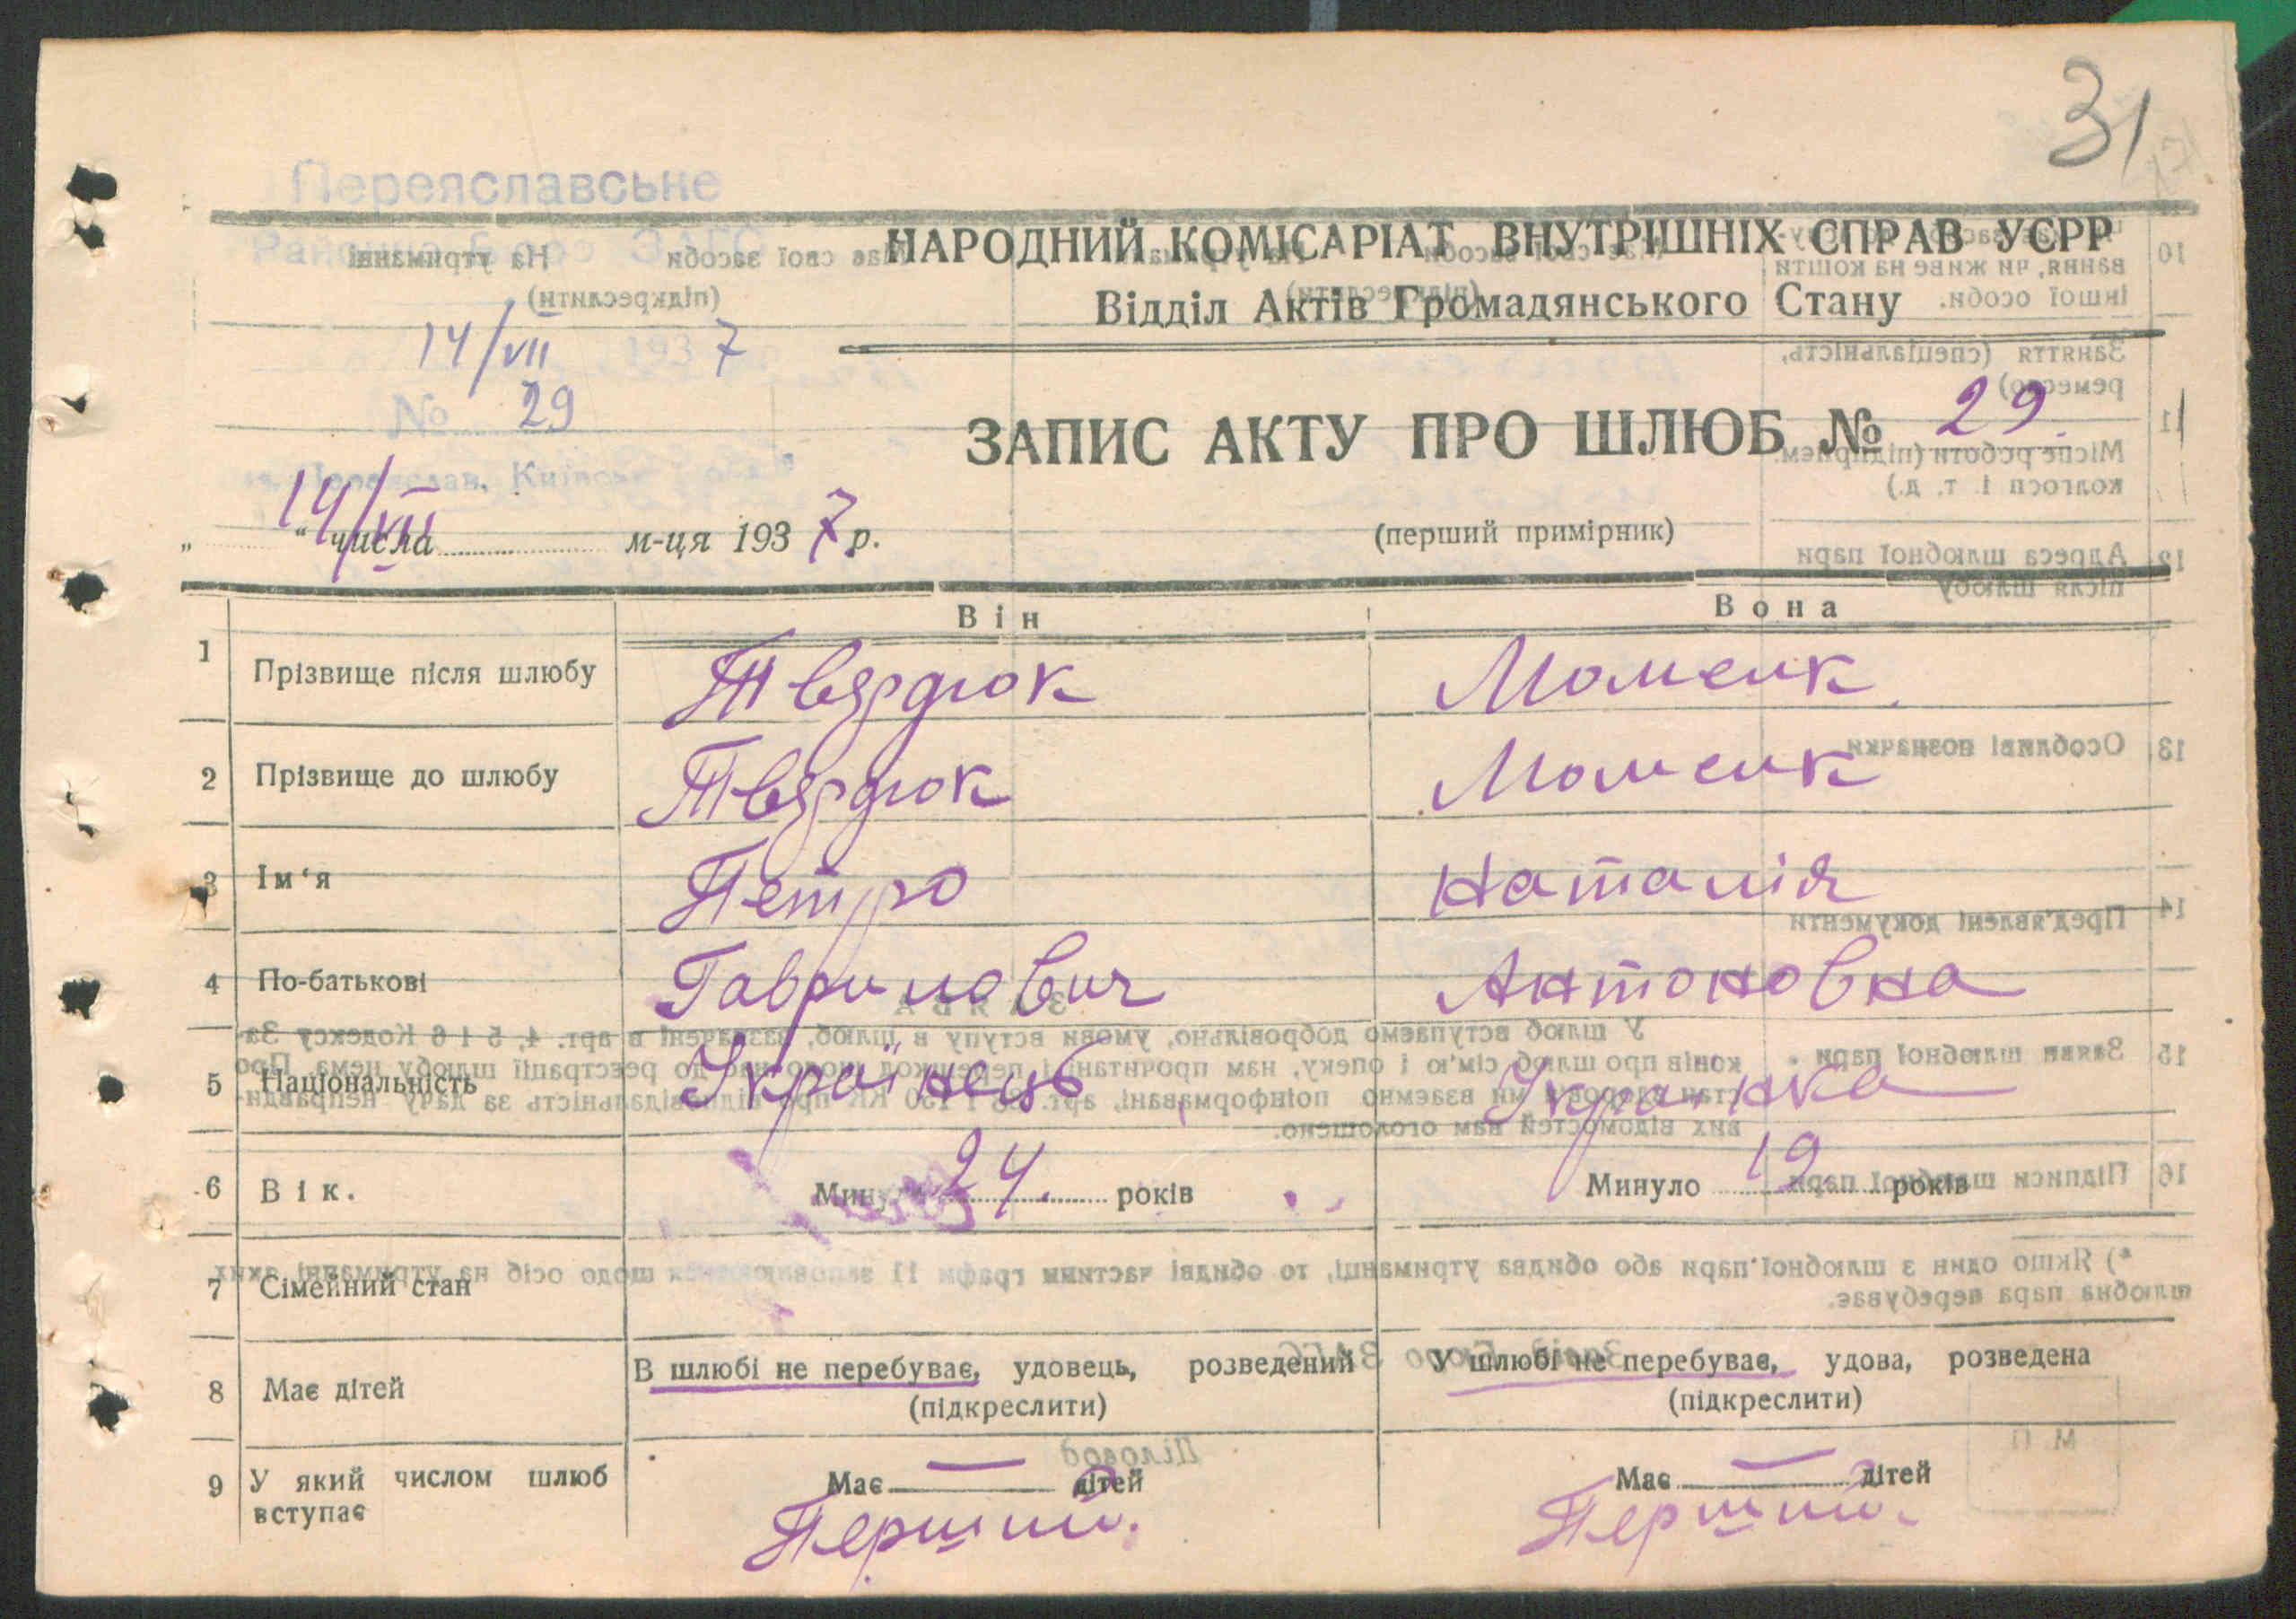 31
Переяславське
Районне Бюро ЗАГС
НАРОДНИЙ КОМІСАРІАТ ВНУТРІШНІХ СПРАВ УСРР
Відділ Актів Громадянського Стану
14/VII 1937
№ 29
ЗАПИС АКТУ ПРО ШЛЮБ № 29.
м. Переяслав, Київськ
„ 14/VII “ числа м-ця 1937 р.
(перший примірник)
Він Вона
1 Прізвище після шлюбу Твярдюк Моменк
2 Прізвище до шлюбу Твярдюк Моменк
3 Ім‘я Петро Наталія
4 По-батькові Гаврилович Антоновна
5 Національність Українець Українка
6 Вік. Минуло 24. років Минуло 19 років
7 Сімейний стан
8 Має дітей В шлюбі не перебуває, удовець, розведений У шлюбі не перебуває, удова, розведена
(підкреслити) (підкреслити)
9 У який числом шлюб вступає Має — дітей Має — дітей
Перший. Перший.